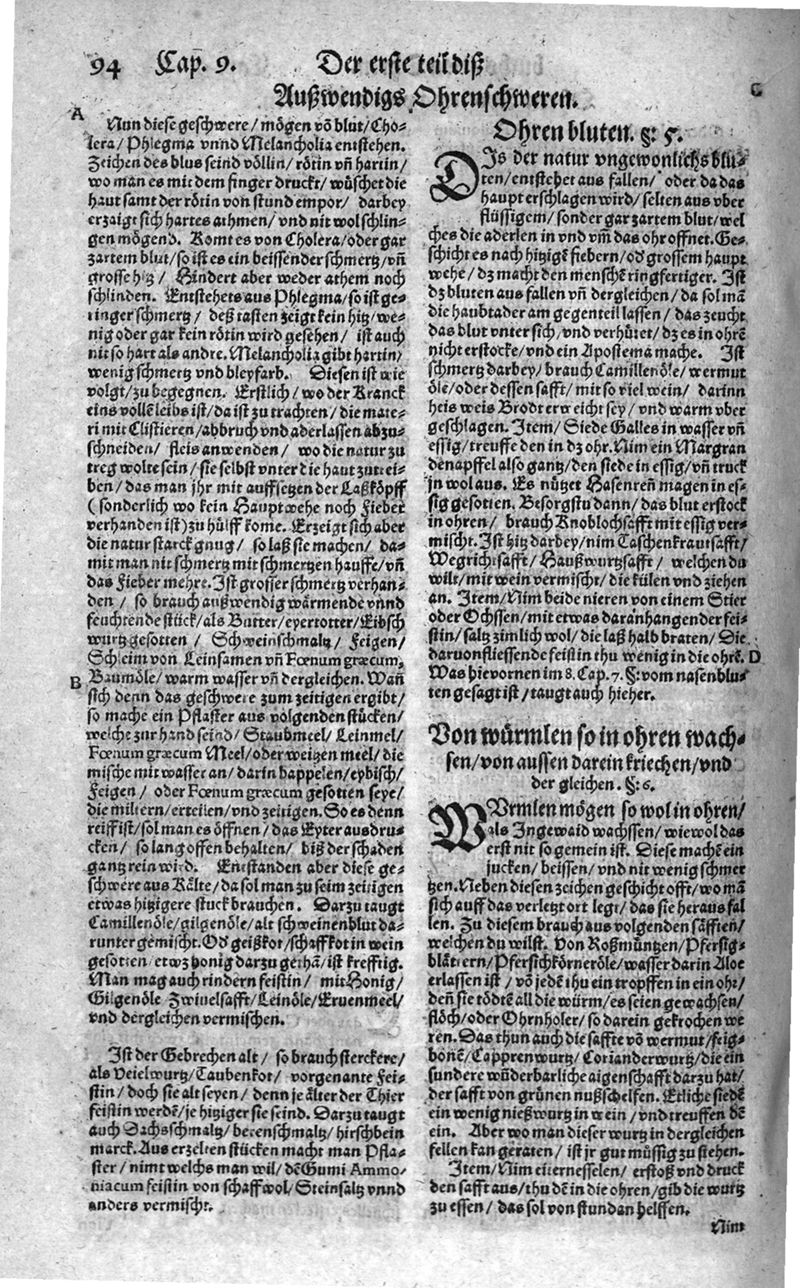 94 Cap. 9. Der erste teil diß
Außwendigs Ohrenschweren.
A
Nun diese geschwere/ mögen võ blut/ Cho-
lera/ Phlegma vnnd Melancholia entstehen.
Zeichen des bluts seind völlin/ rötin vñ hartin/
wo man es mit dem finger druckt/ wüschet die
haut samt der rötin von stund empor/ darbey
erzaigt sich hartes athmen/ vnd nit wol schlin-
gen mögend. Komt es von Cholera/ oder gar
zartem blut/ so ist es ein beissender schmertz/ vñ
grosse hitz/ Hindert aber weder athem noch
schlinden. Entstehets aus Phlegma/ so ist ge-
ringer schmertz/ deß tasten zeigt kein hitz/ we-
nig oder gar kein rötin wird gesehen/ ist auch
nit so hart als andre. Melancholia gibt hartin/
wenig schmertz vnd bleyfarb. Diesen ist wie
volgt/ zu begegnen. Erstlich/ wo der Kranck
eins vollẽ leibs ist/ da ist zu trachten/ die mate-
ri mit Clistieren/ abbruch vnd aderlassen abzu-
schneiden/ fleis anwenden/ wo die natur zu
treg wolte sein/ sie selbst vnter die haut zutrei-
ben/ das man jhr mit auffsetzen der Laßköpff
(sonderlich wo kein Hauptwehe noch Fieber
verhanden ist) zu hülff kome. Erzeigt sich aber
die natur starck gnug/ so laß sie machen/ da-
mit man nit schmertz mit schmertzen hauffe/ vñ
das Fieber mehre. Ist grosser schmertz verhan-
den/ so brauch außwendig wärmende vnnd
feuchtende stück/ als Butter/ eyertotter/ Eibsch
wurtz gesotten/ Schweinschmaltz/ Feigen/
Schleim von Leinsamen vñ Fœnum græcum,
B
Baumöle/ warm wasser vñ dergleichen. Wañ
sich denn das geschwere zum zeitigen ergibt/
so mache ein Pflaster aus volgenden stücken/
welche zur hand seind/ Staubmeel/ Leinmel/
Fœnum græcum Meel/ oder weitzen meel/ die
mische mit wasser an/ darin bappelen/ eybisch/
Feigen/ oder Fœnum græcum gesotten seye/
die miltern/ erteilen/ vnd zeitigen. So es denn
reiff ist/ sol man es öffnen/ das Eyter ausdru-
cken/ so lang offen behalten/ biß der schaden
gantz rein wird. Entstanden aber diese ge-
schwere aus Kälte/ da sol man zu seim zeitigen
etwas hitzigere stuck brauchen. Darzu taugt
Camillenöle/ gilgenöle/ alt schweinen blut da-
runter gemischt. Od geißkot/ schaffkot in wein
gesotten/ etwz honig darzu gethã/ ist krefftig.
Man mag auch rindern feistin/ mit Honig/
Gilgenöle Zwiuelsafft/ Leinöle/ Eruenmeel/
vnd dergleichen vermischen.
Ist der Gebrechen alt/ so brauch sterckere/
als Veielwurtz/ Taubenkot/ vorgenante Fei-
stin/ doch sie alt seyen/ denn je älter der Thier
feistin werdẽ/ je hitziger sie seind. Darzu taugt
auch Dachsschmaltz/ berenschmaltz/ hirschbein
marck. Aus erzelten stücken macht man Pfla-
ster/ nimt welchs man wil/ dẽ Gumi Ammo-
niacum feistin von schaffwol/ Steinsaltz vnnd
anders vermischt.
C
Ohren bluten. §: 5.
DIs der natur vngewonlichs blu-
ten/ entstehet aus fallen/ oder da das
haupt erschlagen wird/ selten aus vber
flüssigem/ sonder gar zartem blut/ wel
ches die aderlen in vnd vm̃ das ohr offnet. Ge-
schicht es nach hitzigẽ fiebern/ od grossem haupt
wehe/ dz macht den menschẽ ringfertiger. Ist
dz bluten aus fallen vñ dergleichen/ da sol mã
die haubtader am gegenteil lassen/ das zeucht
das blut vnter sich/ vnd verhütet/ dz es in ohrẽ
nicht erstocke/ vnd ein Apostema mache. Ist
schmertz darbey/ brauch Camillenöle/ wermut
öle/ oder dessen safft/ mit so viel wein/ darinn
heis weis Brodt erweicht sey/ vnd warm vber
geschlagen. Item/ Siede Galles in wasser vñ
essig/ treuffe den in dz ohr. Nim ein Margran
denapffel also gantz/ den siede in essig/ vñ truck
jn wol aus. Es nützet Hasenreñ magen in es-
sig gesotten. Besorgstu dann/ das blut erstock
in ohren/ brauch Knoblochsafft mit essig ver-
mischt. Ist hitz darbey/ nim Taschenkrautsafft/
Wegrichsafft/ Haußwurtzsafft/ welchen du
wilt/ mit wein vermischt/ die külen vnd ziehen
an. Item/ Nim beide nieren von einem Stier
oder Ochssen/ mit etwas daran hangender fei-
stin/ saltz zimlich wol/ die laß halb braten/ Die
daruon fliessende feistin thu wenig in die ohrẽ.
D
Was hievornen im 8. Cap. 7. §: vom nasenblu-
ten gesagt ist/ taugt auch hieher.
Von würmlen so in ohren wach-
sen/ von aussen darein kriechen/ vnd
der gleichen. §: 6.
WVrmlen mögen so wol in ohren/
als Ingewaid wachssen/ wiewol das
erst nit so gemein ist. Diese machẽ ein
jucken/ beissen/ vnd nit wenig schmer
tzen. Neben diesen zeichen geschicht offt/ wo mã
sich auff das verletzt ort legt/ das sie heraus fal
len. Zu diesem brauch aus volgenden säfften/
welchen du wilst. Von Roßmüntzen/ Pfersig-
blättern/ Pfersichkörneröle/ wasser darin Aloe
erlassen ist/ võ jedẽ thu ein tropffen in ein ohr/
deñ sie tödtẽ all die würm/ es seien gewachsen/
flöch/ oder Ohrnholer/ so darein gekrochen we
ren. Das thun auch die saffte võ wermut/ feig-
bonẽ/ Capprenwurtz/ Corianderwurtz/ die ein
sundere wũderbarliche aigenschafft darzu hat/
der safft von grünen nußschelfen. Etliche siedẽ
ein wenig nießwurtz in wein/ vnd treuffen dẽ
ein. Aber wo man dieser wurtz in dergleichen
fellen kan geraten/ ist jr gut müssig zu stehen.
Item/ Nim eiternesselen/ erstoß vnd druck
den safft aus/ thu dẽ in die ohren/ gib die wurtz
zu essen/ das sol von stund an helffen.
Nim